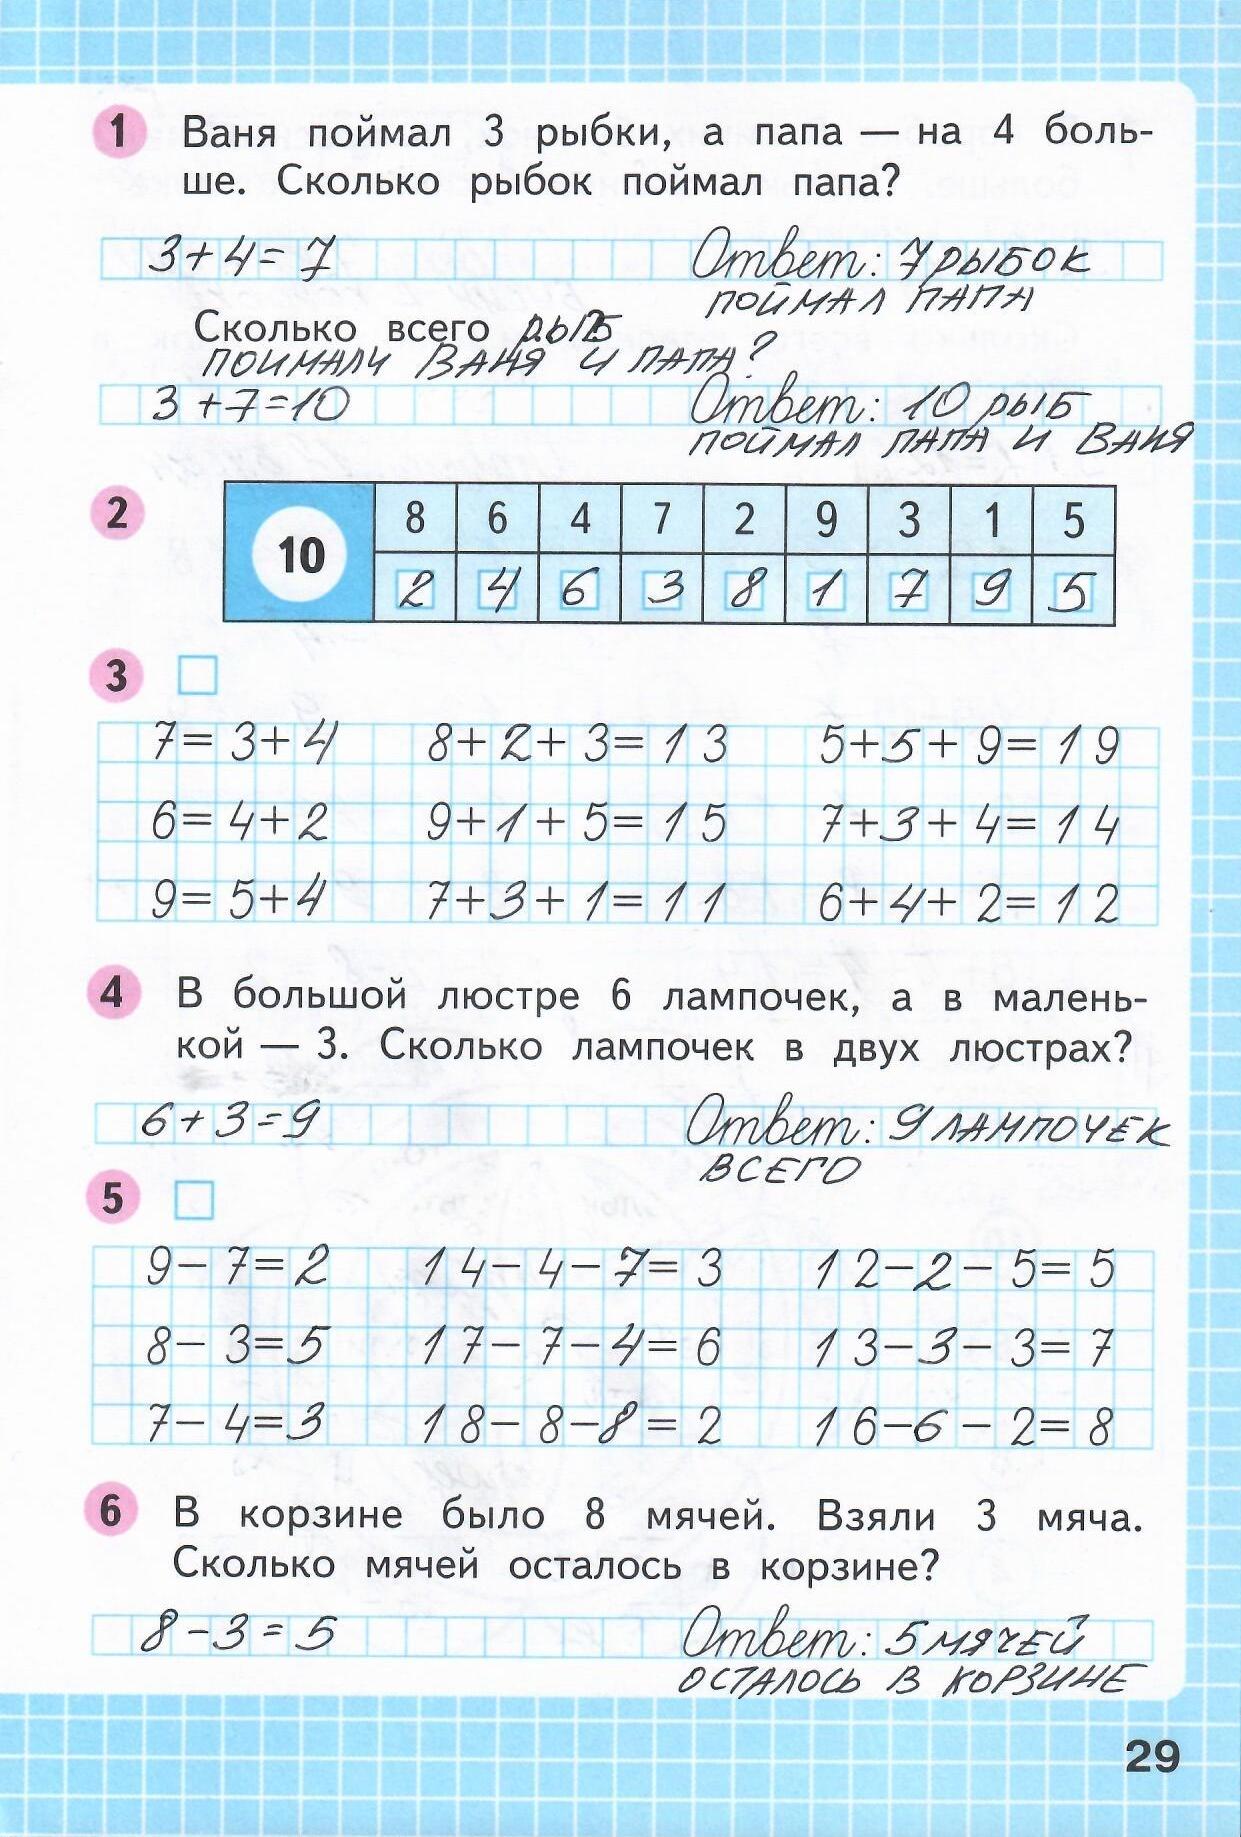 1 Ваня поймал 3 рыбки, а папа — на 4 боль-
ше. Сколько рыбок поймал папа?
3+4=7 Ответ: 7 РЫБОК
ПОЙМАЛ ПАПА
Сколько всего РЫБ?
ПОЙМАЛИ ВАНЯ И ПАПА?
3+7=10 Ответ: 10 РЫБ
ПОЙМАЛ ПАПА И ВАНЯ
2 10 8 6 4 7 2 9 3 1 5
2 4 6 3 8 1 7 9 5
3
7=3+4 8+2+3=13 5+5+9=19
6=4+2 9+1+5=15 7+3+4=14
9=5+4 7+3+1=11 6+4+2=12
4 В большой люстре 6 лампочек, а в малень-
кой — 3. Сколько лампочек в двух люстрах?
6+3=9 Ответ: 9 ЛАМПОЧЕК
ВСЕГО
5
9-7=2 14-4-7=3 12-2-5=5
8-3=5 17-7-4=6 13-3-3=7
7-4=3 18-8-8=2 16-6-2=8
6 В корзине было 8 мячей. Взяли 3 мяча.
Сколько мячей осталось в корзине?
8-3=5 Ответ: 5 МЯЧЕЙ
ОСТАЛОСЬ В КОРЗИНЕ
29